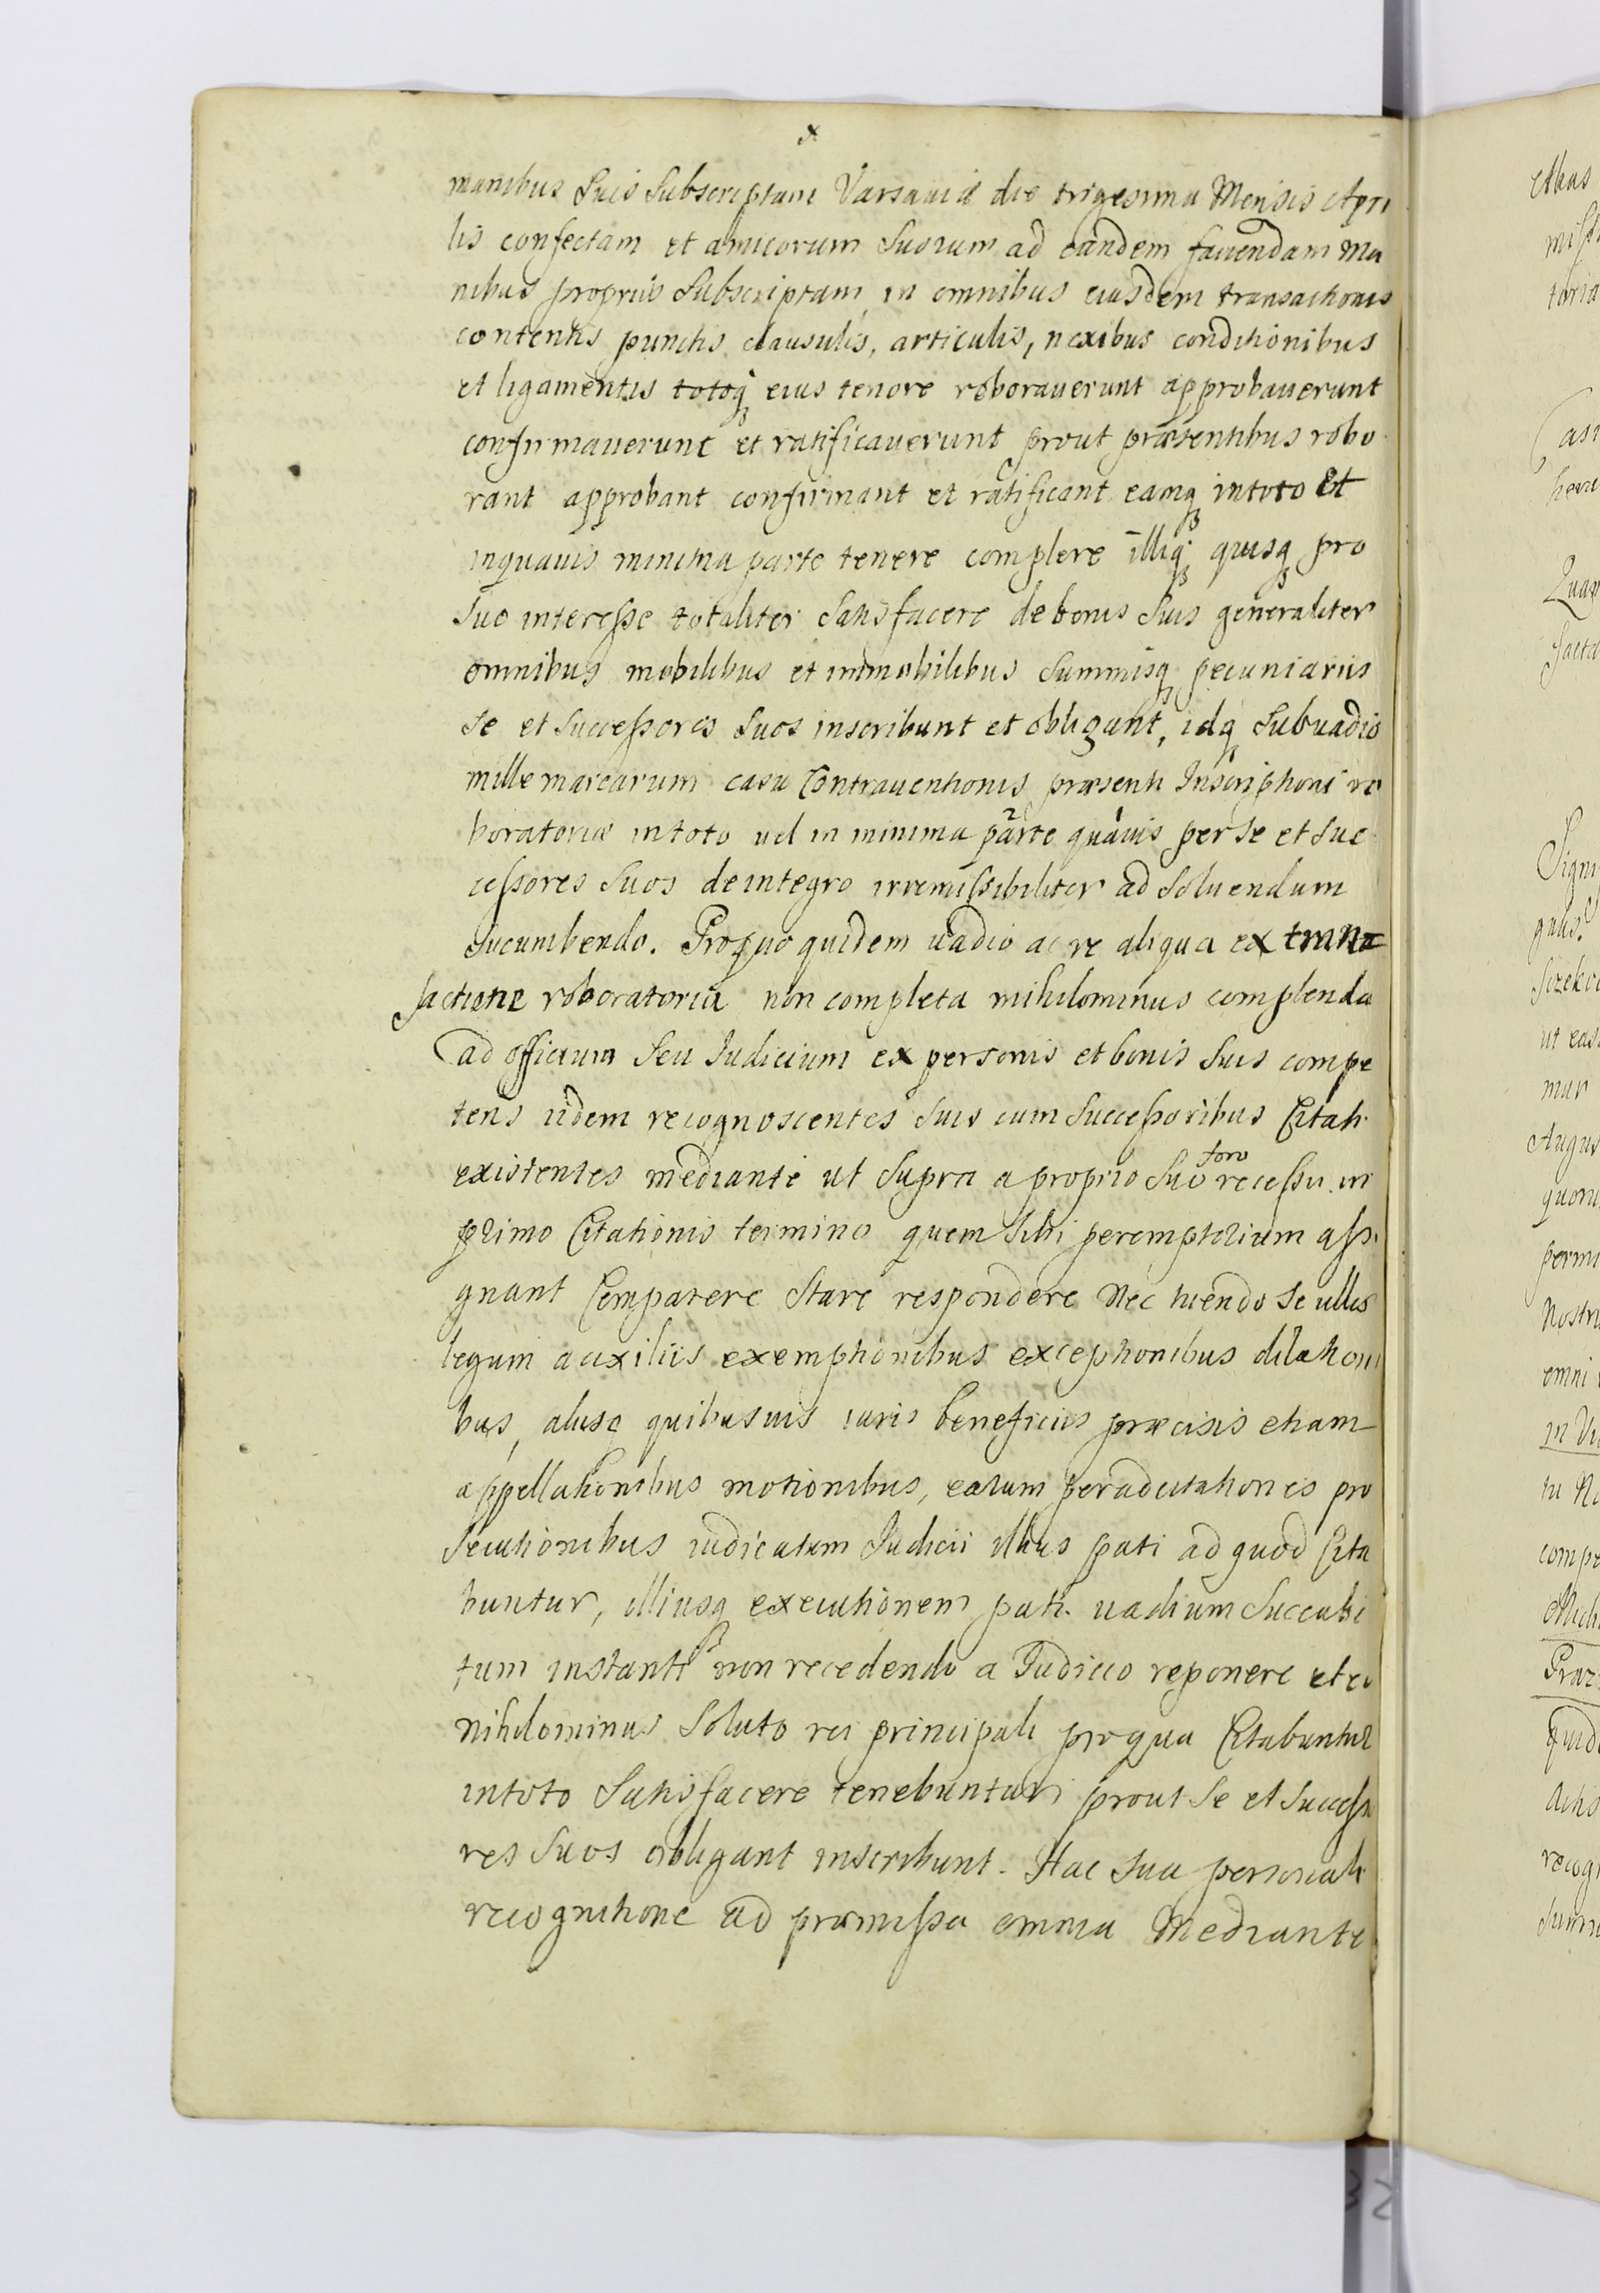 x
manibus Suis Subscriptam Varsaviæ die trigesima Mensis Apri
lis confectam et amicorum Suorum ad eandem favendam Ma
nibus proprijs Subscriptam, in omnibus eiusdem transactionis
contentis punctis clausulis, articulis, nexibus conditionibus
et ligamentis totoq eius tenore roborauerunt approbauerunt
confirmauerunt et ratificauerunt prout præsentibus robo
rant approbant confirmant et ratificant eamq intoto Et
inquauis minima parte tenere complere illiq quisq pro
Suo interesse totaliter Satisfacere de bonis Suis generaliter
omnibus mobilibus et immobilibus Summisq pecuniariis
Se et Successores Suos inscribunt et obligant, idq Sub vadio
mille marcarum casu Contrauentionis præsenti Inscriptioni ro
boratoriæ intoto vel in minima parte quauis per Se et Suc
cessores Suos deintegro irremissibiliter ad Soluendum
Sucumbendo. Proquo quidem vadio ac re aliqua ex tran
sactione roboratoria non completa nihilominus complenda
ad officium Seu Iudicium ex personis et bonis Suis compe
tens iidem recognoscentes Suis cum Successoribus Citati
existentes mediante ut Supra a proprio Suo foro recessu in
primo Citationis termino quem Sibi peremptorium assi
gnant Comparere Stare respondere Nec tuendo Se ullis
legum auxiliis exemptionibus exceptionibus dilationi
bus, aliisq quibusuis iuris beneficiis præcisis etiam
appellationibus motionibus, earum peradcitationes pro
Secutionibus iudicatum Iudicii illius pati ad quod Cita
buntur, illiusq executionem pati. vadium Succubi
tum instanti non recedendo a Iudicio reponere et eo
nihilominus Soluto rei principali pro qua Citabuntur
intoto Satisfacere tenebuntur prout Se et Successo
res Suos obligant inscribunt. Hac Sua personali
recognitione ad præmissa omnia Mediante